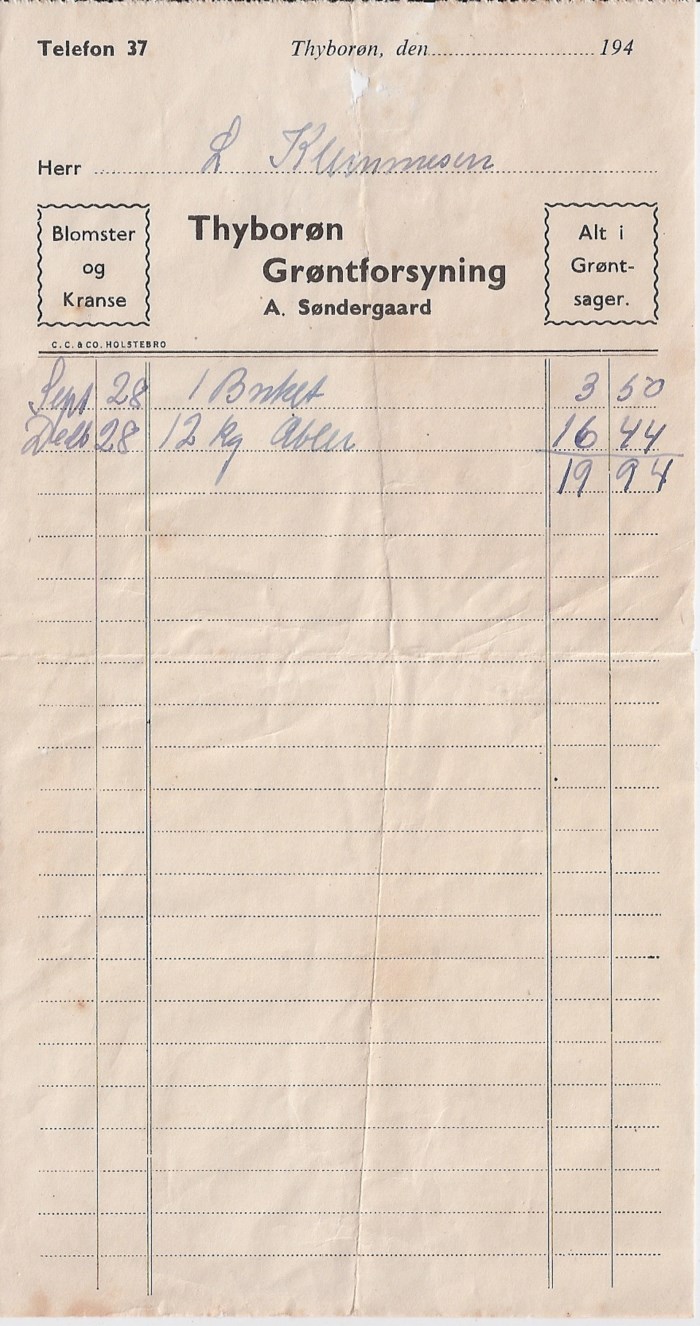 Telefon 37 Thyborøn, den 194
Herr L Klemmesen
Blomster
og
Kranse
Thyborøn
Grøntforsyning
A. Søndergaard
Alt i
Grønt-
sager.
C. C. & CO. HOLSTEBRO
Sept 28 1 Buket 3 50
28 12 kg Æbler 16 44
19 94